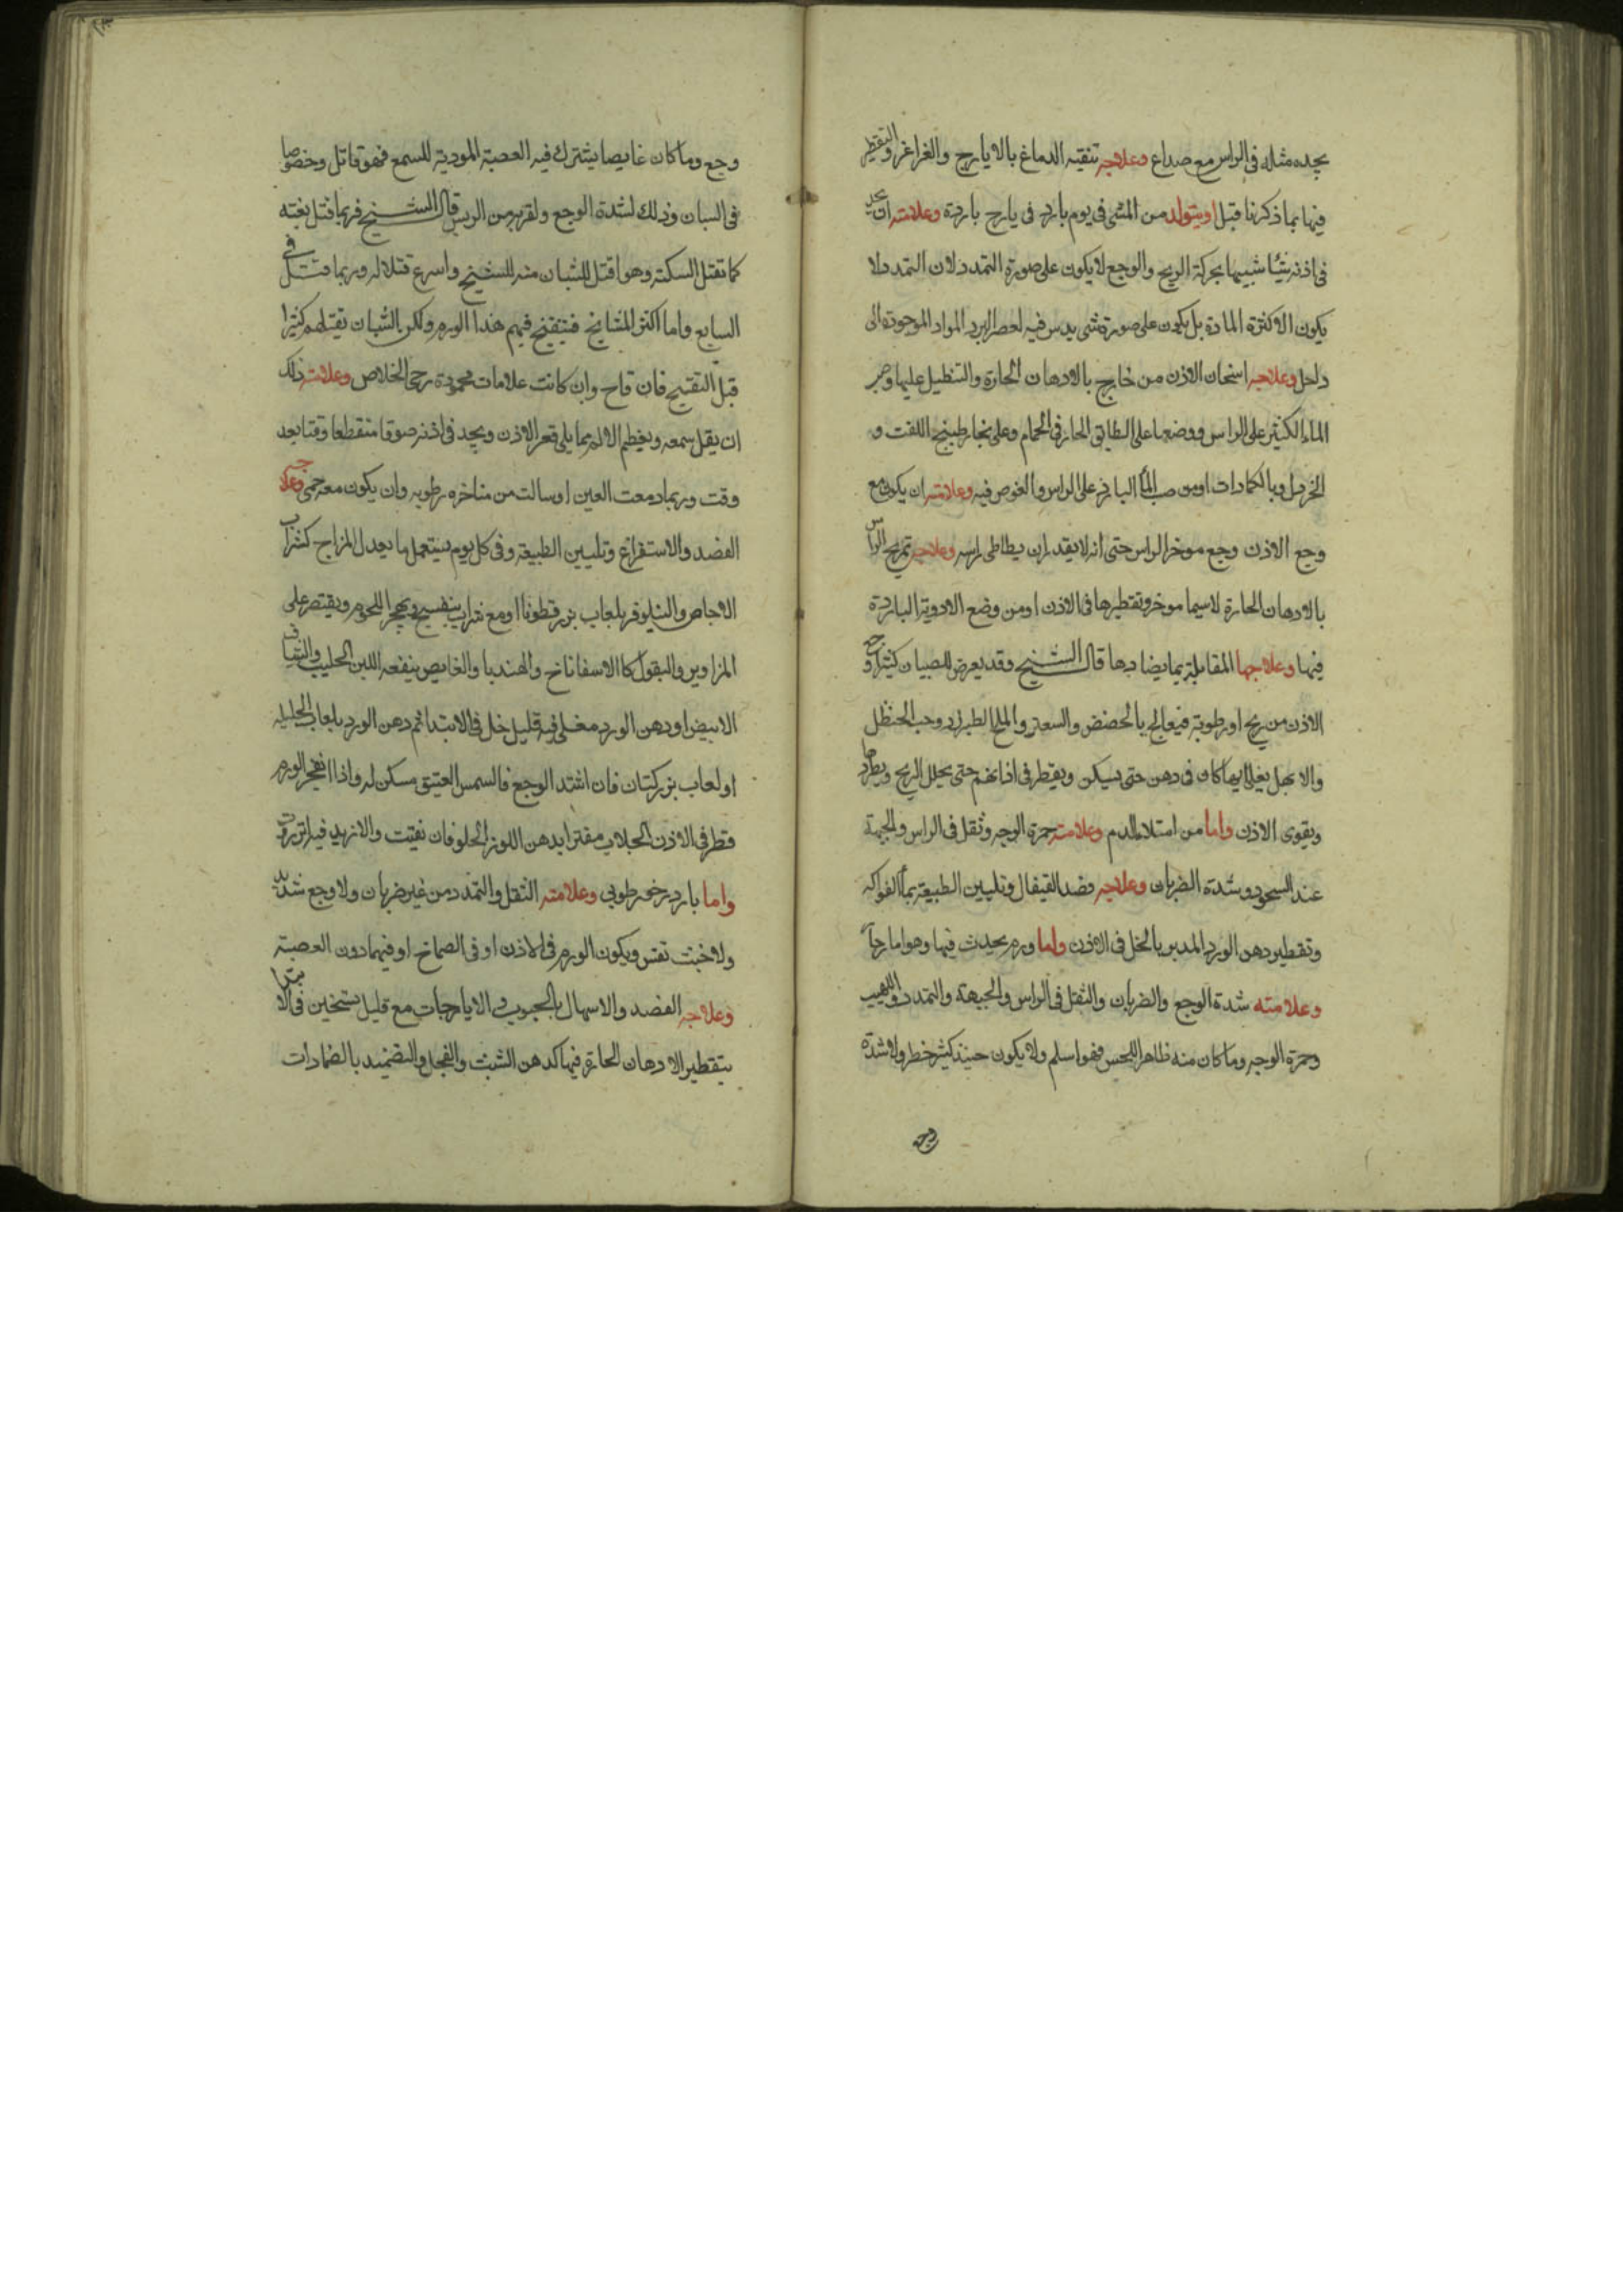 يجده مثله فى الراس مع صداع وعلاجه تنقيه الدماغ بالايارج والغراغر والتقطير
فيها بما ذكرنا قبل او يتولد من المشى فى يوم بارد فى يارح باردة وعلامته ان يجد
فى اذنه شيئا شبيها بحركة الريح والوجع لا يكون على صورة التمدد لان التمدد لا
يكون الا لكثرة المادة بل يكون على صورة شى يدس فيه لحصر البرد المواد الموجودة الى
داخل وعلاجه اسخان الاذن من خارج بالادهان الحارة والتنطيل عليها وصب
الماء الكثير على الراس ووضعها على الطابق الحار فى الحمام وعلى بخار طبيخ اللفت و
الخردل وبالكمادات او من صب الماء البارد على الراس والغوص فيه وعلامته ان يكون مع
وجع الاذن وجع موخر الراس حتى انه لا يقدر ان يطاطى راسه وعلاجه تمريخ الراس
بالادهان الحارة لاسيما موخره وتقطيرها فى الاذن او من وضع الادوية الباردة
فيها وعلاجها المقابلة بما يضادها قال الشيخ وقد يعرض للصبيان كثيرا وجع
الاذن من ريح او رطوبة فيعالج بالحضض والسعتر والملح الطبرزد وحب الحنظل
والابهل يغلى ايها كان فى دهن حتى يسكن ويقطر فى اذانهم حتى يحلل الريح ويطردها
ويقوى الاذن واما من امتلاء الدم وعلامته حمرة الوجه وثقل فى الراس والجبهة
عند السجود وشدة الضربان وعلاجه فصد القيفال وتليين الطبيعة بماء الفواكه
وتقطير دهن الورد المدبر بالخل فى الاذن واما ورم يحدث فيها وهو اما حار
وعلامته شدة الوجع والضربان والثقل فى الراس والجبهة والتمدد واللهيب
وحمرة الوجه وما كان منه ظاهرا للحس فهو اسلم ولا يكون حينئذ كثير خطر ولا شدة
وجع وما كان غايصا يشترك فيه العصبة المودية للسمع فهو قاتل وخصوصا
فى السبان وذلك لشدة الوجع ولقربه من الريس قال الشيخ فربما قتل بغتة
كما تقتل السكتة وهو اقتل للشبان منه للشيخ واسرع قتلا له وربما قتل فى
السابع واما اكثر المشايخ فيتقيح فيهم هذا الورم ولكن الشبان تقتلهم كثيرا
قبل التقيح فان قاح وان كانت علامات محمودة رجى الخلاص وعلامته ذلك
ان يقل سمعه ويغطم الالم مما يلى قعر الاذن ويجد فى اذنه صوتا منقطعا وقتا بعد
وقت وربما دمعت العين او سالت من مناخره رطوبه وان يكون معه حمى وعلاجه
الفصد والاستفراغ وتليين الطبيعة وفى كل يوم يستعمل ما يعدل المزاج كشراب
الاجاص والنيلوفر بلعاب بزر قطونا او مع شراب بنفسج ويهجر اللحوم ويقتصر على
المزاوير والبقول كالاسفاناخ والهندبا والغايص ينفعه اللبن الحليب والشياف
الابيض او دهن الورد مغلى فيه قليل خل فى الابتدا ثم دهن الورد بلعاب الحلبله
او لعاب بزر كتان فان اشتد الوجع فالسمن العتيق مسكن له واذا انفجر الورم
قطر فى الاذن الجلاب مفترا بدهن اللوز الحلو فان نقيت والا زيد فيه انزروت
واما بارد رخو رطوبى وعلامته الثقل والتمدد من غير ضربان ولا وجع شديد
ولا خبث نفس ويكون الورم فى الاذن او فى الصماخ او فيهما دون العصبة
وعلاجه الفصد والاسهال بالحبوب والايارجات مع قليل تسخين فى الابتدا
بتقطير الادهان الحارة فيها كدهن الشبث والفجل والتضميد بالضمادات